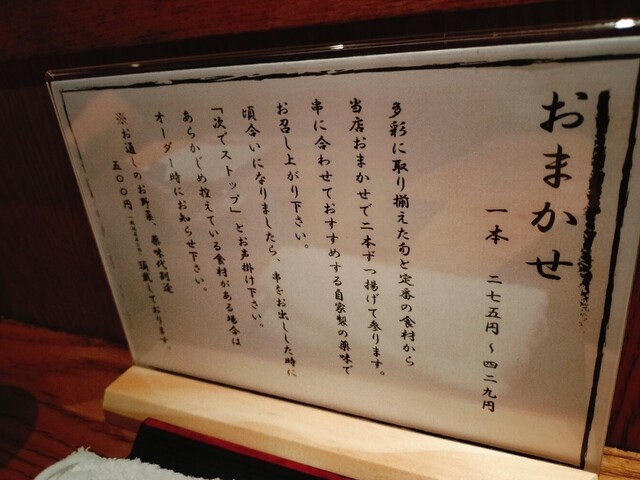 おまかせ
一本 二七五円～四二九円
多彩に取り揃えた旬と定番の食材から
当店おまかせで二本ずつ揚げて参ります。
串に合わせておすすめする自家製の薬味で
お召し上がり下さい。
頃合いになりましたら、串をお出しした時に
「次でストップ」とお声掛け下さい。
あらかじめ控えている食材がある場合は
オーダー時にお知らせ下さい。
※お通しのお野菜、薬味代別途
五〇〇円 頂戴しております。